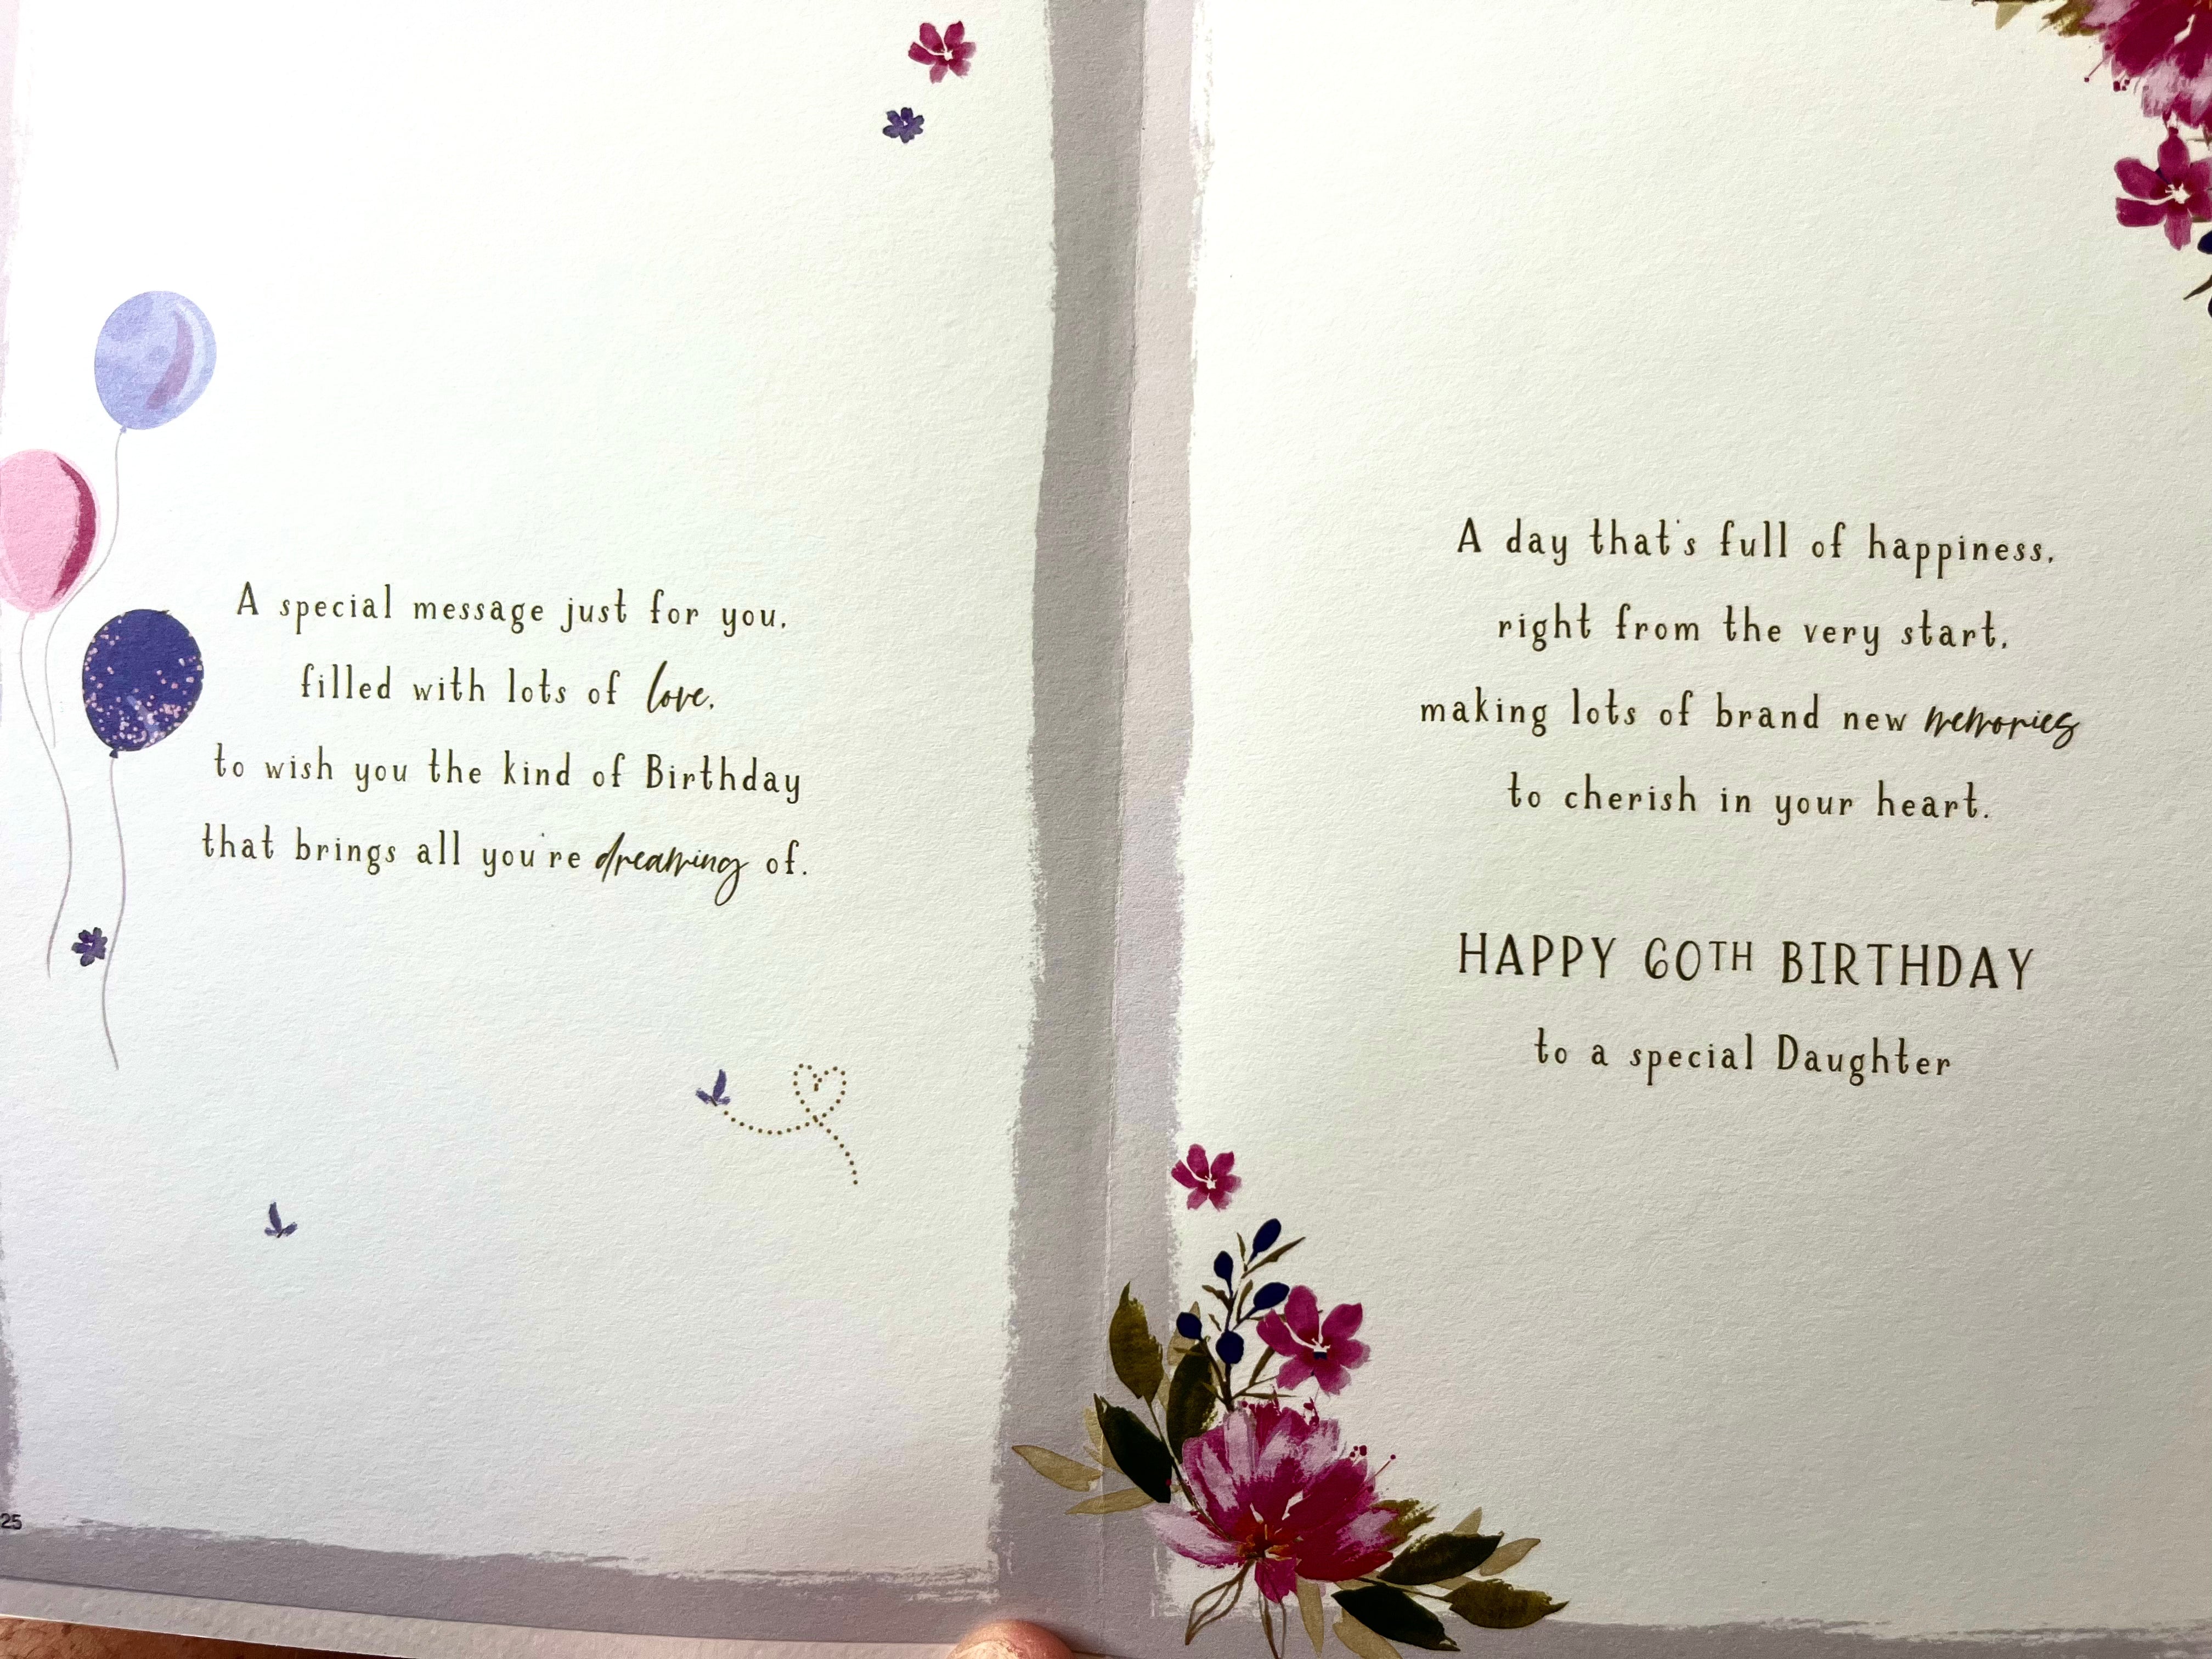 A special message just for you,
filled with lots of love,
to wish you the kind of Birthday
that brings all you're dreaming of.
25
A day that's full of happiness,
right from the very start,
making lots of brand new memories
to cherish in your heart.
HAPPY 60TH BIRTHDAY
to a special Daughter